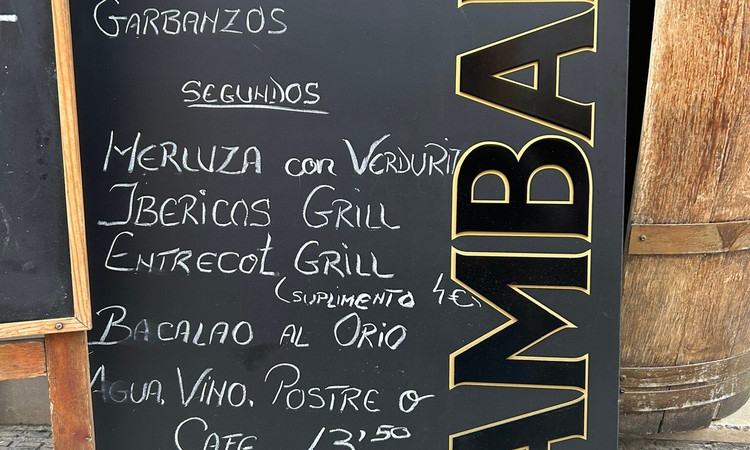 GARBANZOS
SEGUNDOS
MERLUZA con VERDURIT
IBERICOS GRILL
ENTRECOT GRILL
(SUPLIMENTO 4€)
BACALAO AL ORIO
AGUA, VINO, POSTRE O
CAFE 13,50
AMBA